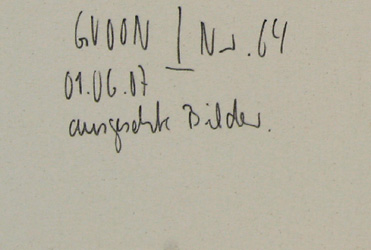 GVOON | Nr. 64
01.06.07
ausgesetzte Bilder.